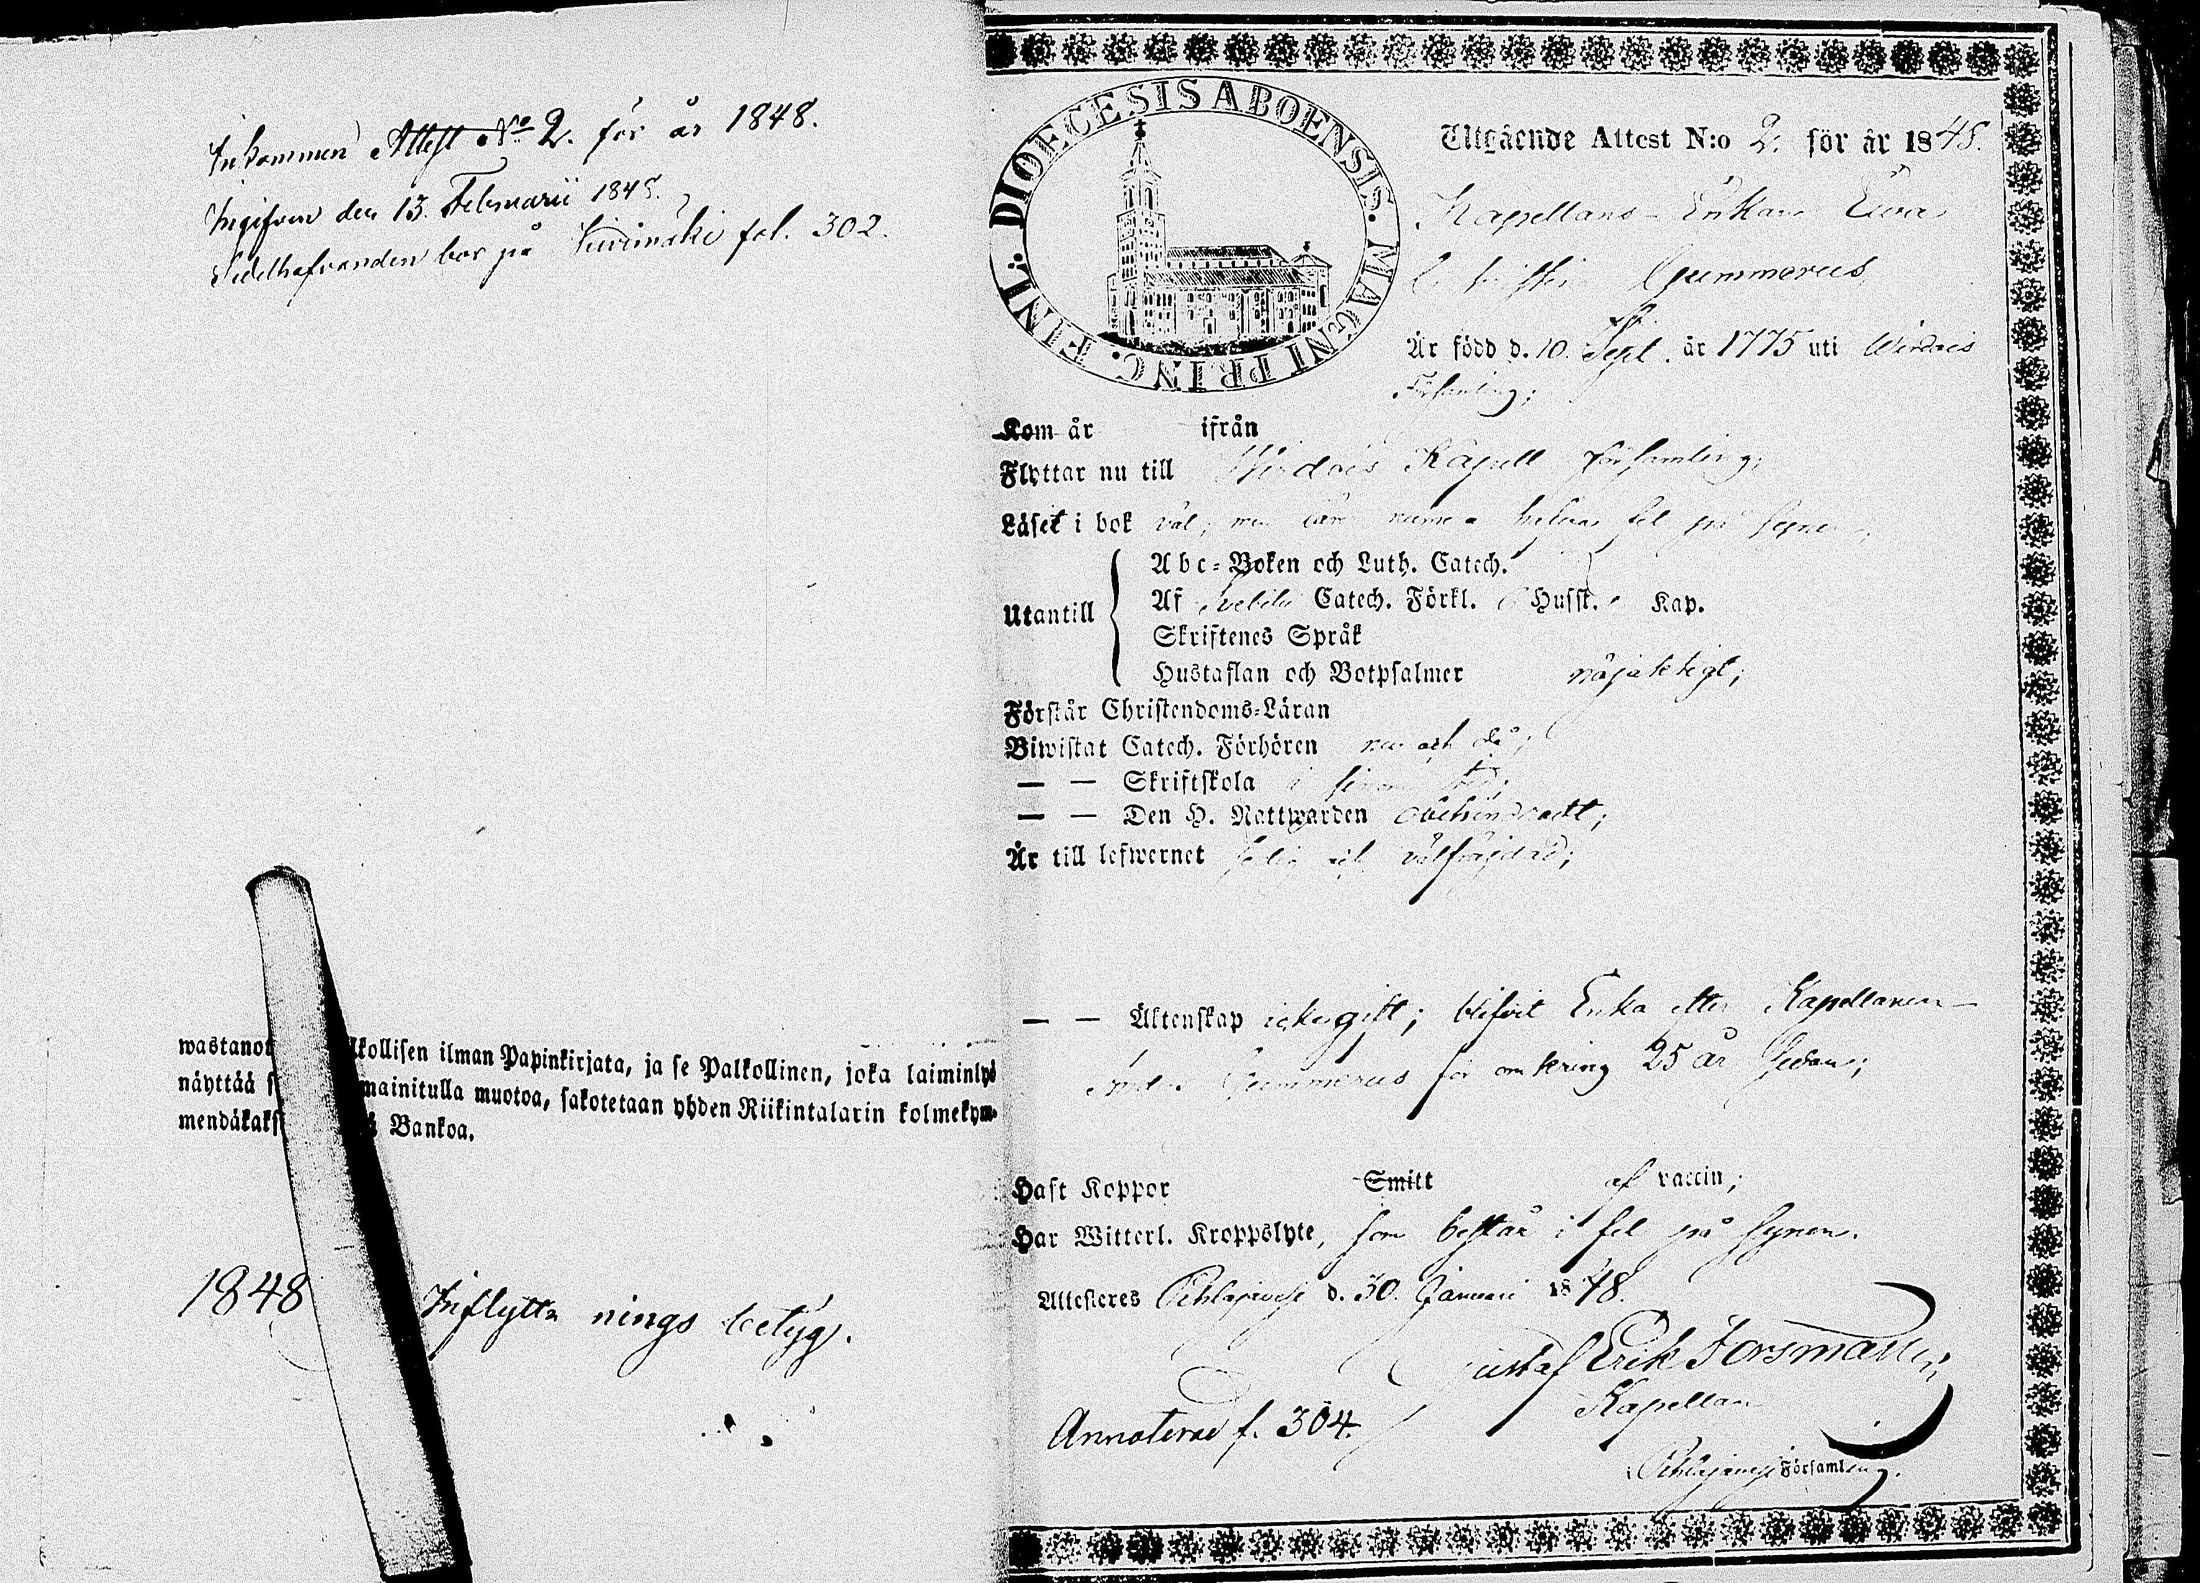 Inkommen Attest No 2. för år 1848.
Ingifven den 13. Februarii 1848.
Sedelhafvanden bor på Kivimäki fol. 302.
wastanot kollisen ilman Papinkirjata, ja se Palkollinen, joka laiminlyö
näyttää mainitulla muotoa, sakotetaan yhden Riikintalarin kolmekym-
mendäkaks Bankoa.
1848 Inflyttnings betyg.
DIOECESIS ABOENSIS. MAGNI PRINC. FINL:
Utgående Attest N:o 2. för år 1848.
Kapellans-Enkan Eva
Christina Gummerus,
Är född d. 10. Sept. år 1775 uti Wirdois
Församling;
Kom år ifrån
Flyttar nu till Wirdois Kapell församling;
Läser i bok väl; men fel på synen;
Utantill
Abc-Boken och Luth. Catech.
Af Svebilii Catech. Förkl. Husst. Kap.
Skriftenes Språk
Hustaflan och Botpsalmer nöjaktigt;
Förstår Christendoms-Läran
Biwistat Catech. Förhören nu och då;
— — Skriftskola i sinom tid;
— — Den H. Nattwarden obehindradt;
Är till lefwernet och välfräjdad;
— — Äktenskap icke gift; blifvit Enka efter Kapellanen
Gummerus för omkring 25 år sedan;
Haft Koppor Smitt af vaccin;
Har Witterl. Kroppslyte, som består i fel på synen.
Attesteres Pihlajavesi d. 30. Januari 1848.
Gustaf Erik Forsman
Kapellan
i Pihlajavesi Församling.
Annoterad f. 304.